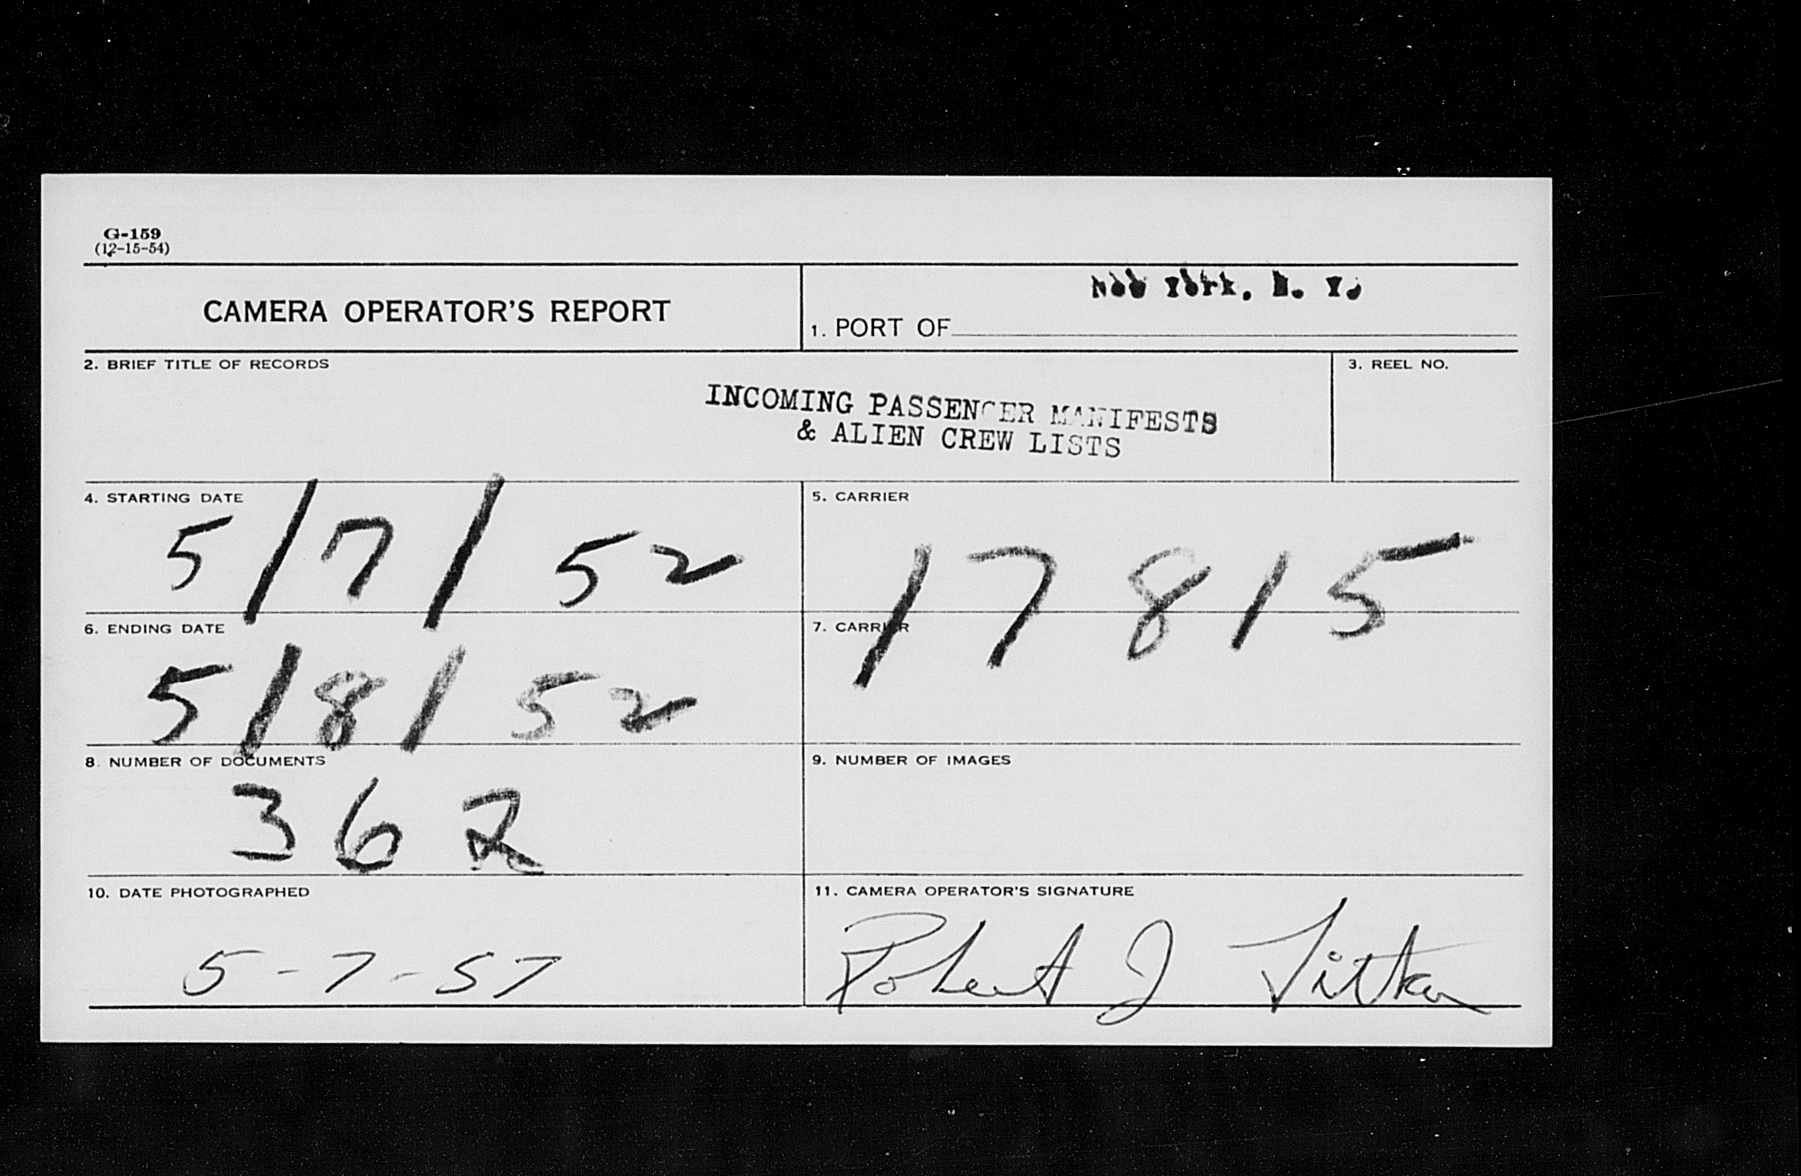 G-159
(12-15-54)
CAMERA OPERATOR'S REPORT
New York, N. Y.
1. PORT OF
2. BRIEF TITLE OF RECORDS
3. REEL NO.
INCOMING PASSENGER MANIFESTS
& ALIEN CREW LISTS
4. STARTING DATE
5/7/52
5. CARRIER
17815
6. ENDING DATE
5/8/52
7. CARRIER
8. NUMBER OF DOCUMENTS
362
9. NUMBER OF IMAGES
10. DATE PHOTOGRAPHED
5-7-57
11. CAMERA OPERATOR'S SIGNATURE
Robert J